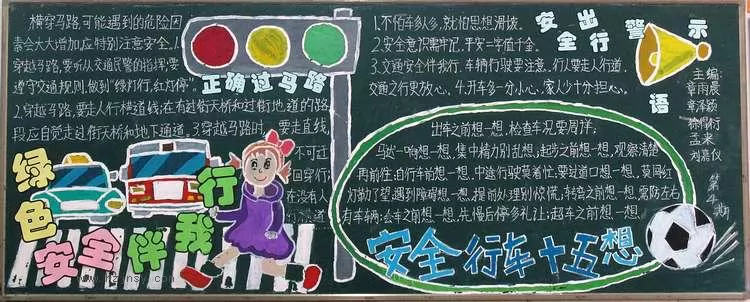 横穿马路,可能遇到的危险因
素会大大增加,应特别注意安全。1.
穿越马路,要听从交通民警的指挥;要
遵守交通规则,做到"绿灯行,红灯停"。
2.穿越马路,要走人行横道线;在有过街天桥和过街地道的路
段应自觉走过街天桥和地下通道。3.穿越马路时,要走直线,
不可迂
回穿行;
在没有人
行横道
正确过马路
绿色
行
安全伴我
1.不怕车多人多,就怕思想滑坡。
2.安全意识需牢记,平安一字值千金。
3.交通安全伴我行。车辆行驶要注意。行人要走人行道,
交通之行更放心。4.开车多一分小心,家人少十分担心。
安全
出行
警示
语
主编:
章雨晨
章泽颖
孟来
刘嘉仪
第4期
出车之前想一想,检查车况要周详;
马达一响想一想,集中精力别乱想;起步之前想一想,观察清楚
再前往;自行车前想一想,中途行驶莫着忙;要过道口想一想,莫闯红
灯勤了望;遇到障碍想一想,提前处理别惊慌;转弯之前想一想,需防左右
有车辆;会车之前想一想,先慢后停多礼让;超车之前想一想
安全行车十五想